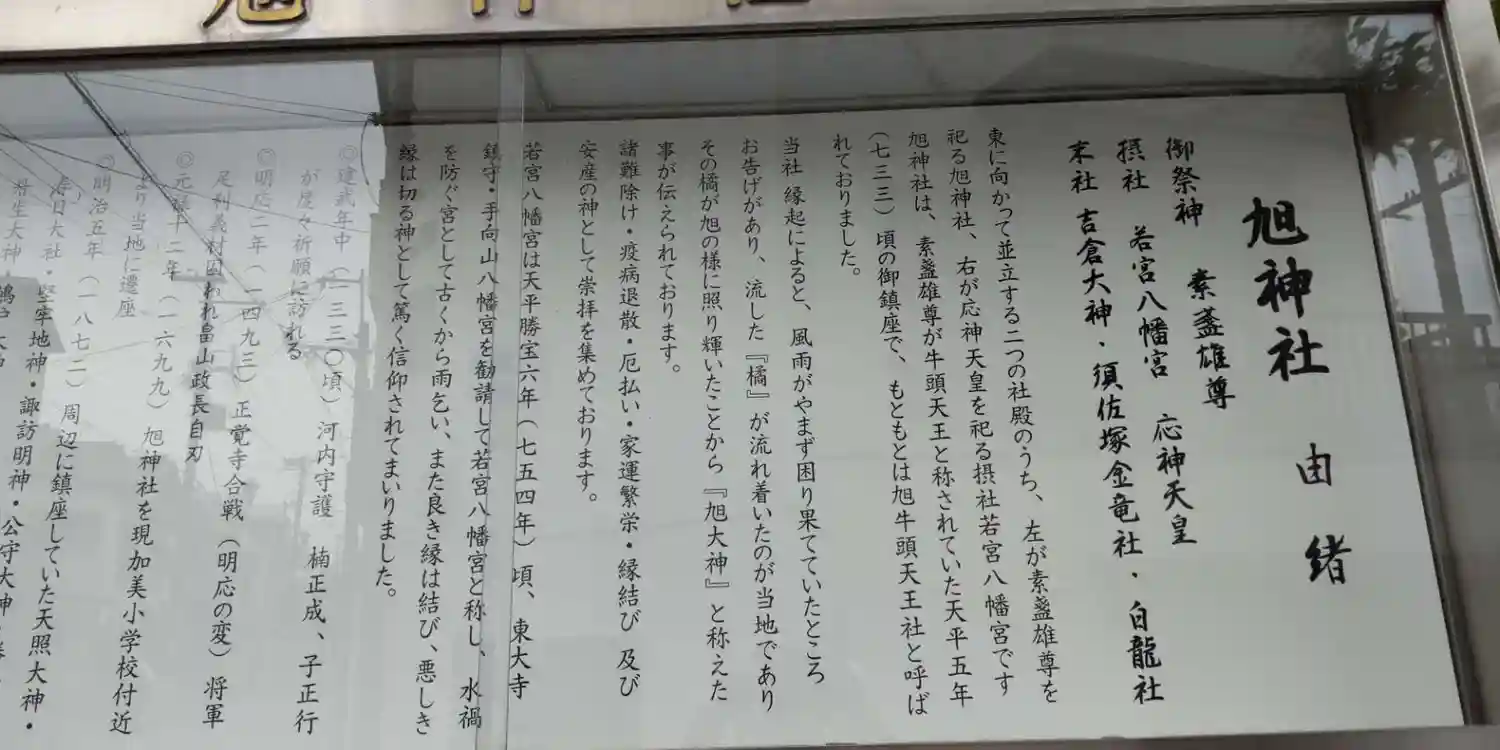 旭神社
旭神社 由緒
御祭神 素盞雄尊
摂社 若宮八幡宮 応神天皇
末社 吉倉大神・須佐塚金竜社・白龍社
東に向かって並立する二つの社殿のうち、左が素盞雄尊を
祀る旭神社、右が応神天皇を祀る摂社若宮八幡宮です
旭神社は、素盞雄尊が牛頭天王と称されていた天平五年
(七三三)頃の御鎮座で、もともとは旭牛頭天王社と呼ば
れておりました。
当社 縁起によると、風雨がやまず困り果てていたところ
お告げがあり、流した『橘』が流れ着いたのが当地であり
その橘が旭の様に照り輝いたことから『旭大神』と称えた
事が伝えられております。
諸難除け・疫病退散・厄払い・家運繁栄・縁結び 及び
安産の神として崇拝を集めております。
若宮八幡宮は天平勝宝六年(七五四年)頃、東大寺
鎮守・手向山八幡宮を勧請して若宮八幡宮と称し、水禍
を防ぐ宮として古くから雨乞い、また良き縁は結び、悪しき
縁は切る神として篤く信仰されてまいりました。
◎建武年中(一三三〇頃)河内守護 楠正成、子正行
が度々祈願に訪れる
◎明応二年(一四九三)正覚寺合戦(明応の変)将軍
足利義材囚われ畠山政長自刃
◎元禄十二年(一六九九)旭神社を現加美小学校付近
より当地に遷座
◎明治五年(一八七二)周辺に鎮座していた天照大神・
春日大社・堅牢地神・諏訪明神・公守大神・